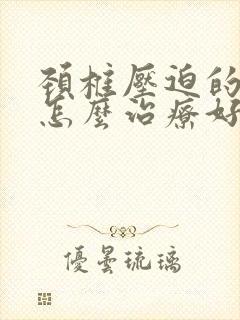 頚椎壓迫的
怎麼治療好
優曇琉璃